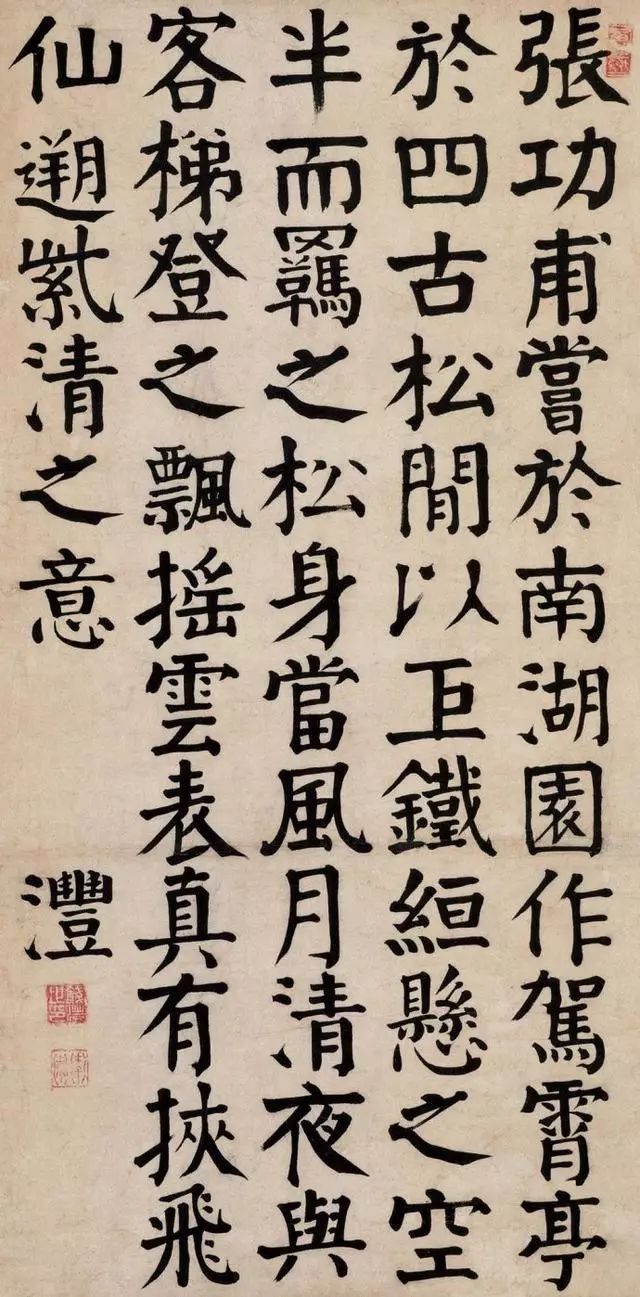 張功甫嘗於南湖園作駕霄亭
於四古松間以巨鐵絙懸之空
半而羈之松身當風月清夜與
客梯登之飄搖雲表真有挾飛
仙遡紫清之意
灃